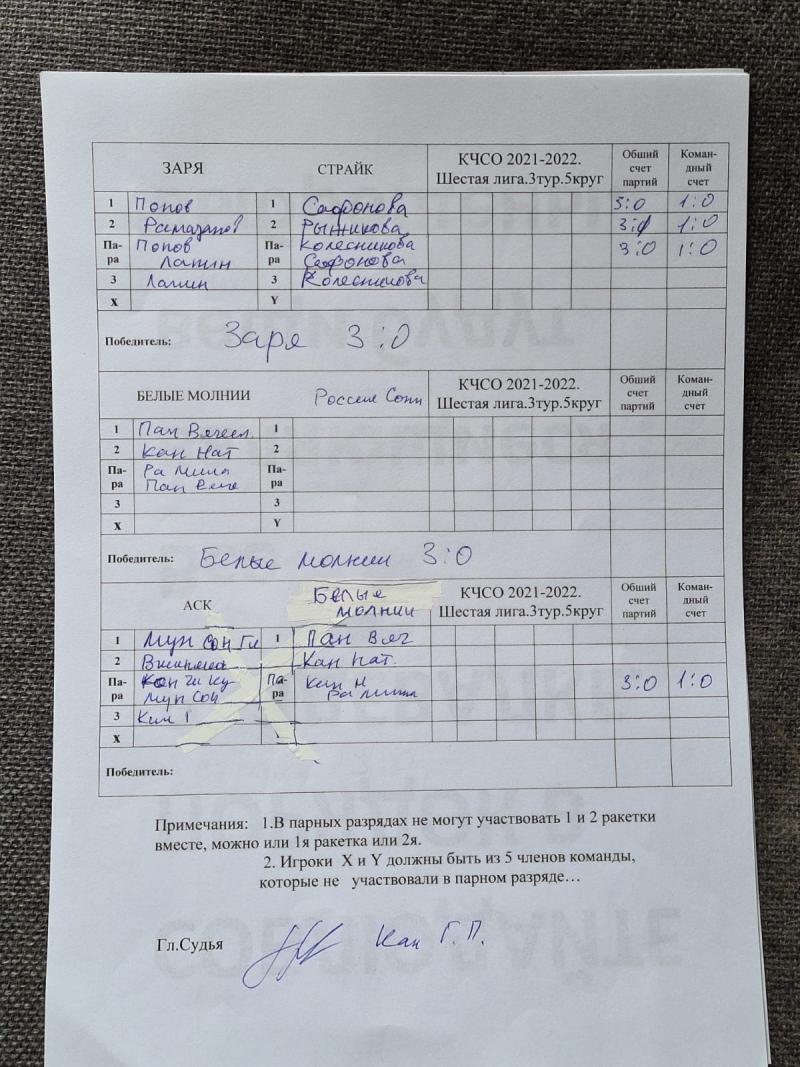 ЗАРЯ СТРАЙК КЧСО 2021-2022. Шестая лига.3тур.5круг Обший счет партий Коман-дный счет
1 Попов 1 Сафонова 3:0 1:0
2 Рамазанов 2 Рыжикова 3:0 1:0
Па-ра Попов Па-ра Колесникова 3:0 1:0
Лапин Сафонова
3 Лапин 3 Колесникова
X Y
Победитель: Заря 3:0
БЕЛЫЕ МОЛНИИ КЧСО 2021-2022. Шестая лига.3тур.5круг Обший счет партий Коман-дный счет
1 Пан 1
2 Кан Нат 2
Па-ра Ра Миша Па-ра
Пан
3 3
X Y
Победитель: Белые молнии 3:0
АСК Белые молнии КЧСО 2021-2022. Шестая лига.3тур.5круг Обший счет партий Коман-дный счет
1 Мун Сон Ги 1 Пан Вяч
2 Кан Нат.
Па-ра Па-ра Кан Н 3:0 1:0
Мун Сон Ра Миша
3 Ким Г
X
Победитель:
Примечания: 1.В парных разрядах не могут участвовать 1 и 2 ракетки
вместе, можно или 1я ракетка или 2я.
2. Игроки X и Y должны быть из 5 членов команды,
которые не участвовали в парном разряде…
Гл.Судья Кан Г.П.